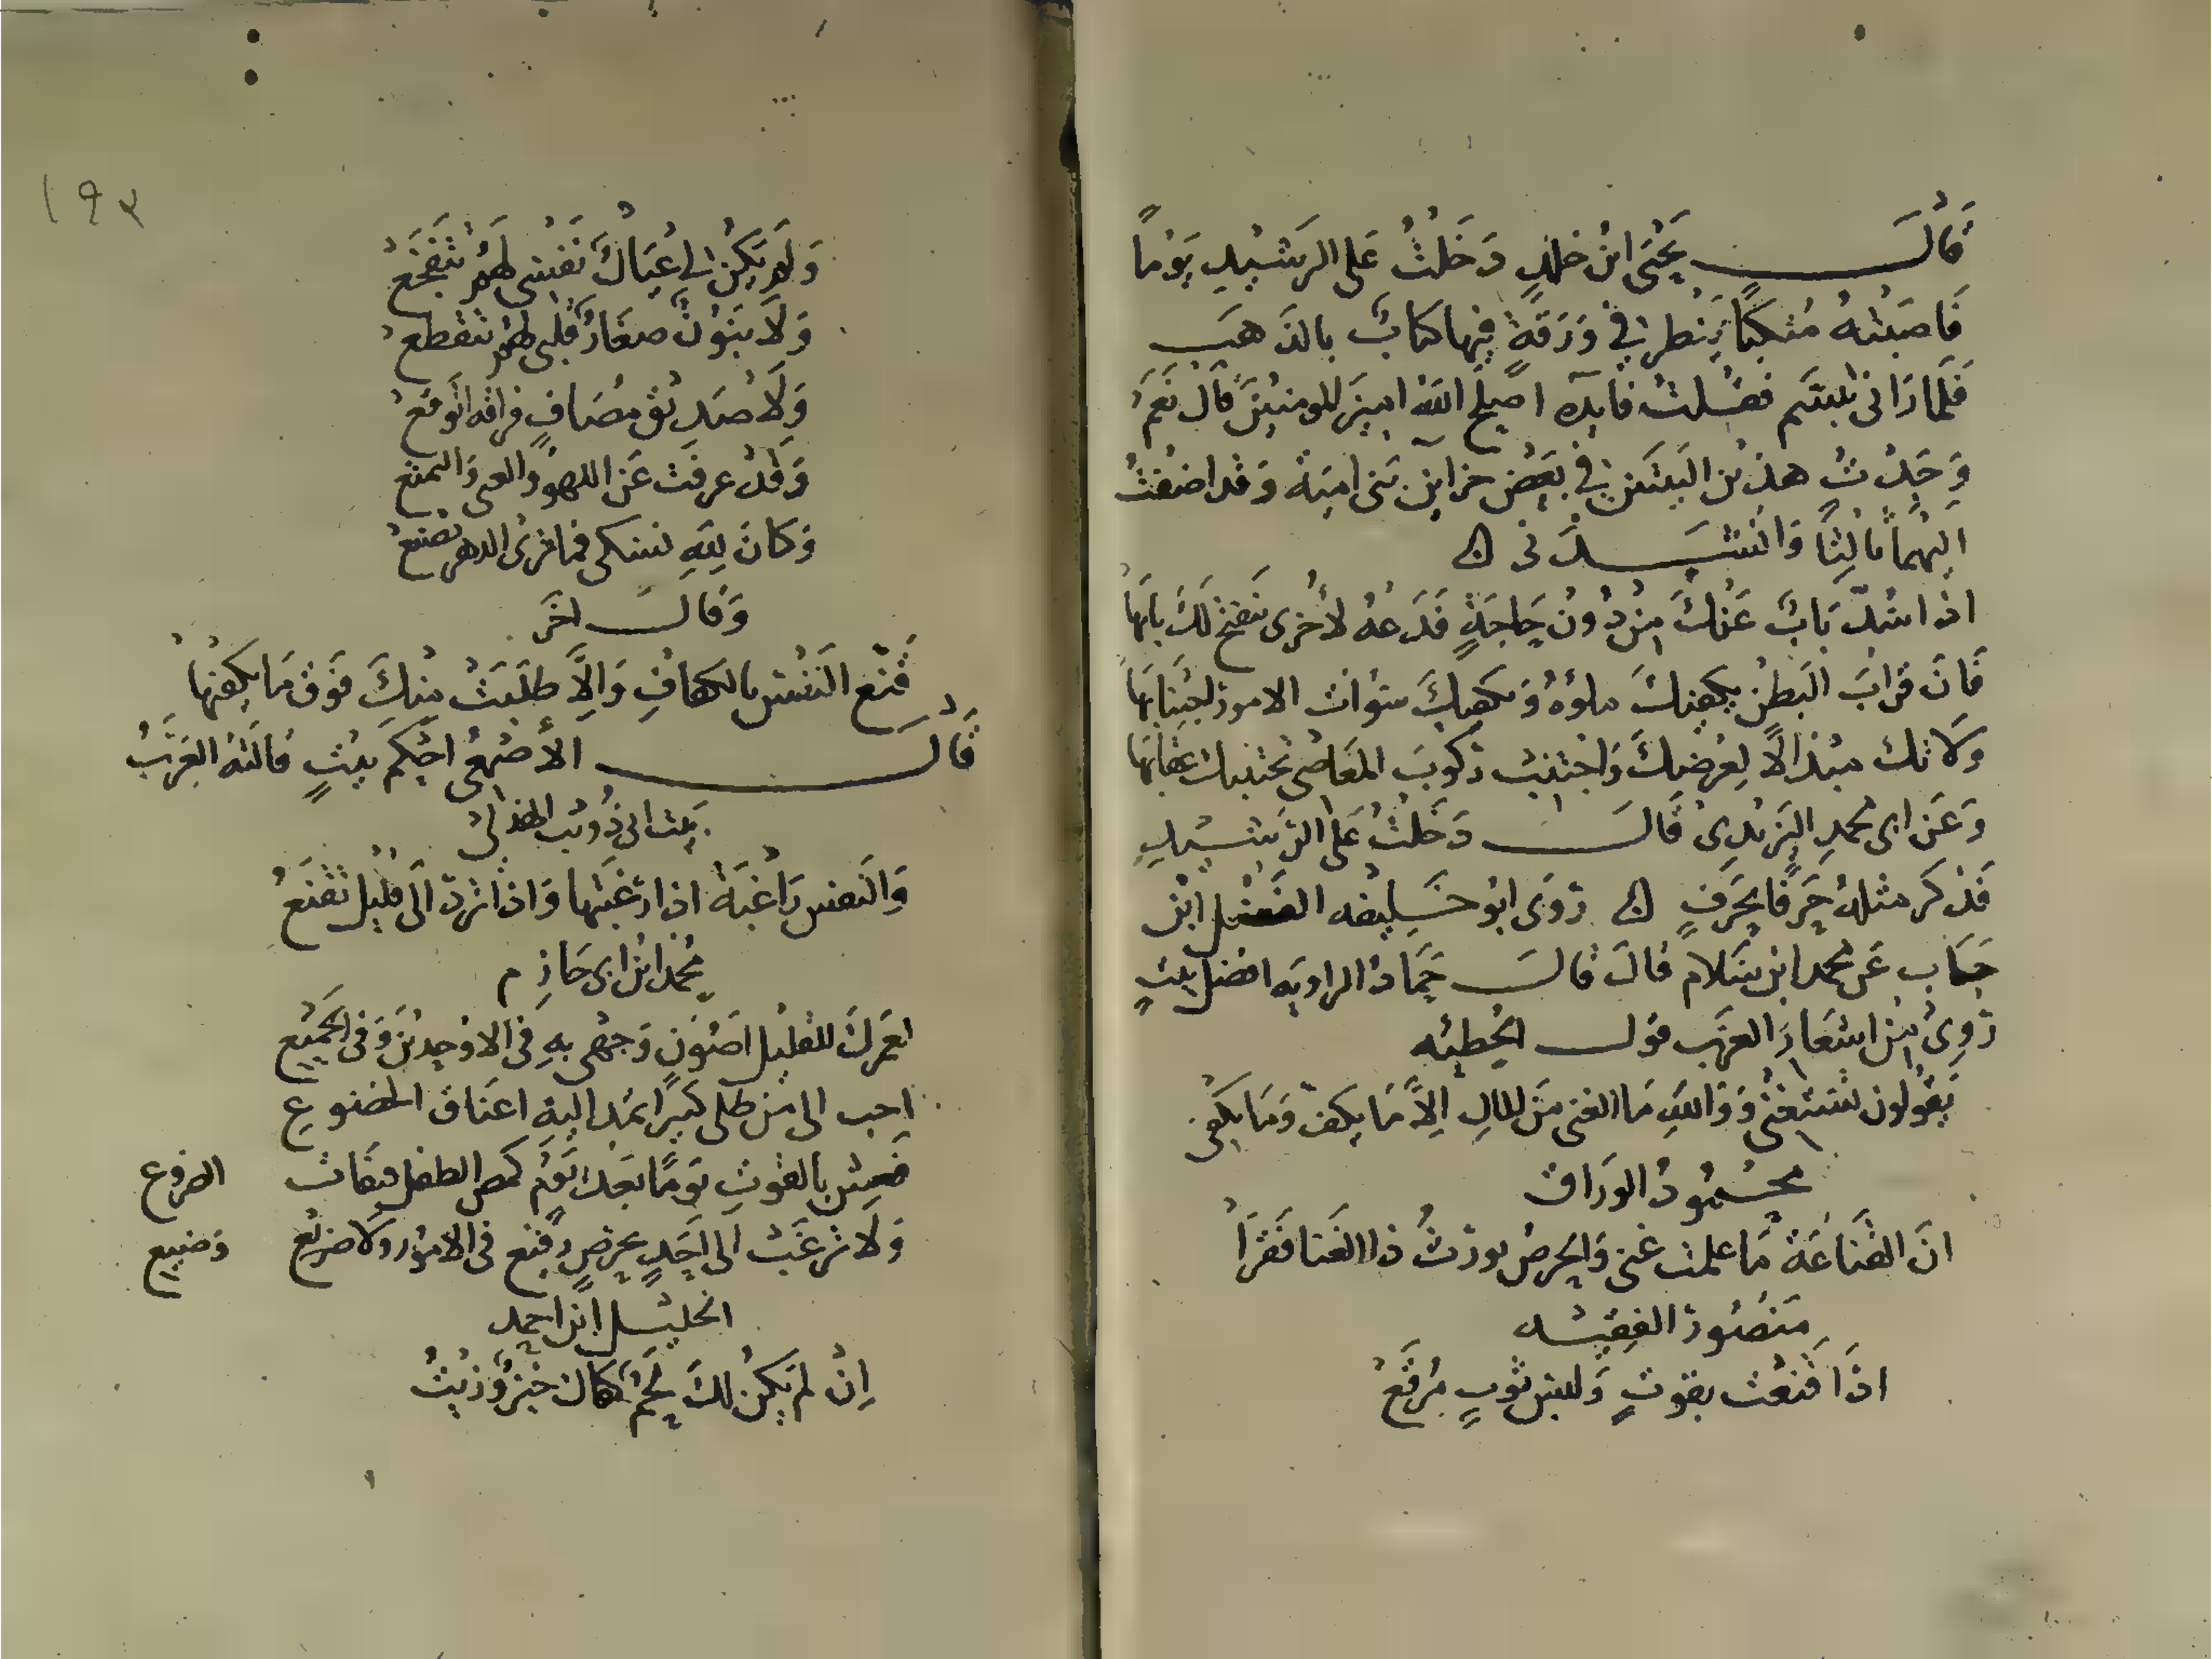 قال يحيى ابن خلد دخلت على الرشيد يوما
فاصبته متكيا ينظر في ورقة فيها كتاب بالذهب
فلما راني تبسم فقلت فايده اصلح الله امير المومنين قال نعم
وجدت هذين البيتين في بعض خزاين بني امية وقد اضفت
اليهما ثالثا وانشدني
اذا سد باب عنك من دون حاجة فدعه لاخرى ينفتح لك بابها
فان قراب البطن يكفيك ملؤه ويكفيك سوات الامور اجتنابها
ولا تك مبذالا لعرضك واجتنب ركوب المعاصي يجتنبك عقابها
وعن ابي محمد اليزيدي قال دخلت على الرشيد
فذكر مثله حرفا بحرف روى ابو خليفه الفضل ابن
حباب عن محمد ابن سلام قال قال حماد الراويه افضل بيت
روي من اشعار العرب قول الحطيئه
يقولون نستغني ووالله ما الغنى من المال الا ما يكف وما يكفي
محمود الوراق
ان القناعة ما علمت غنى والحرص يورث ذا الغنا فقرا
منصور الفقيه
اذا قنعت بقوت ولبس ثوب مرقع
١٩٣
ولم يكن لي عيال نفسي لهم تتفجع
ولا بنون صغار قلبي لهم تتقطع
ولا صديق مصاف فراقه اتوقع
وقد عرفت عن اللهو والغى والتمتع
وكان لله نسكي فما ترى الدهر تصنع
وقال اخر
قنع النفس بالكفاف والا طلبت منك فوق ما يكفيها
قال الاصمعي احكم بيت قالته العرب
بيت ابي ذويب الهذلي
والنفس راغبة اذا رغبتها واذا ترد الى قليل تقنع
محمد ابن ابي حازم
لعمرك للقليل اصون وجهي به في الاوحدين وفي الجميع
احب الي من طلبي كبيرا يمد اليه اعناق الخضوع
فعش بالقوت يوما بعد يوم كمص الطفل فيقات الضروع
ولا ترغب الى احد بحرص رفيع في الامور ولا ضريع وضيع
الخليل ابن احمد
ان لم يكن لك لحم كفاك خبز وزيت